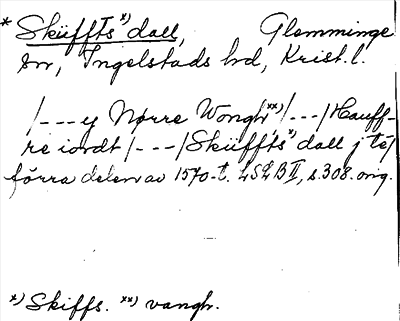 * Sküffts*) dall, Glemminge
sn, Ingelstads hd, Krist. l.
/---y Nørre Wongh**)/---/Hauff-
re iordt/---/Sküffts*) dall j té/
förra delen av 1570-t. LSLB II, s. 308. orig.
*) Skiffs. **) vangh.